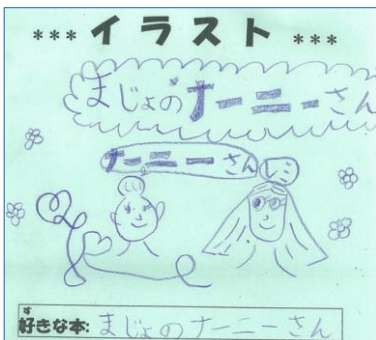 *** イラスト ***
まじょのナーニーさん
ナーニーさん
レニ
す
好きな本: まじょのナーニーさん